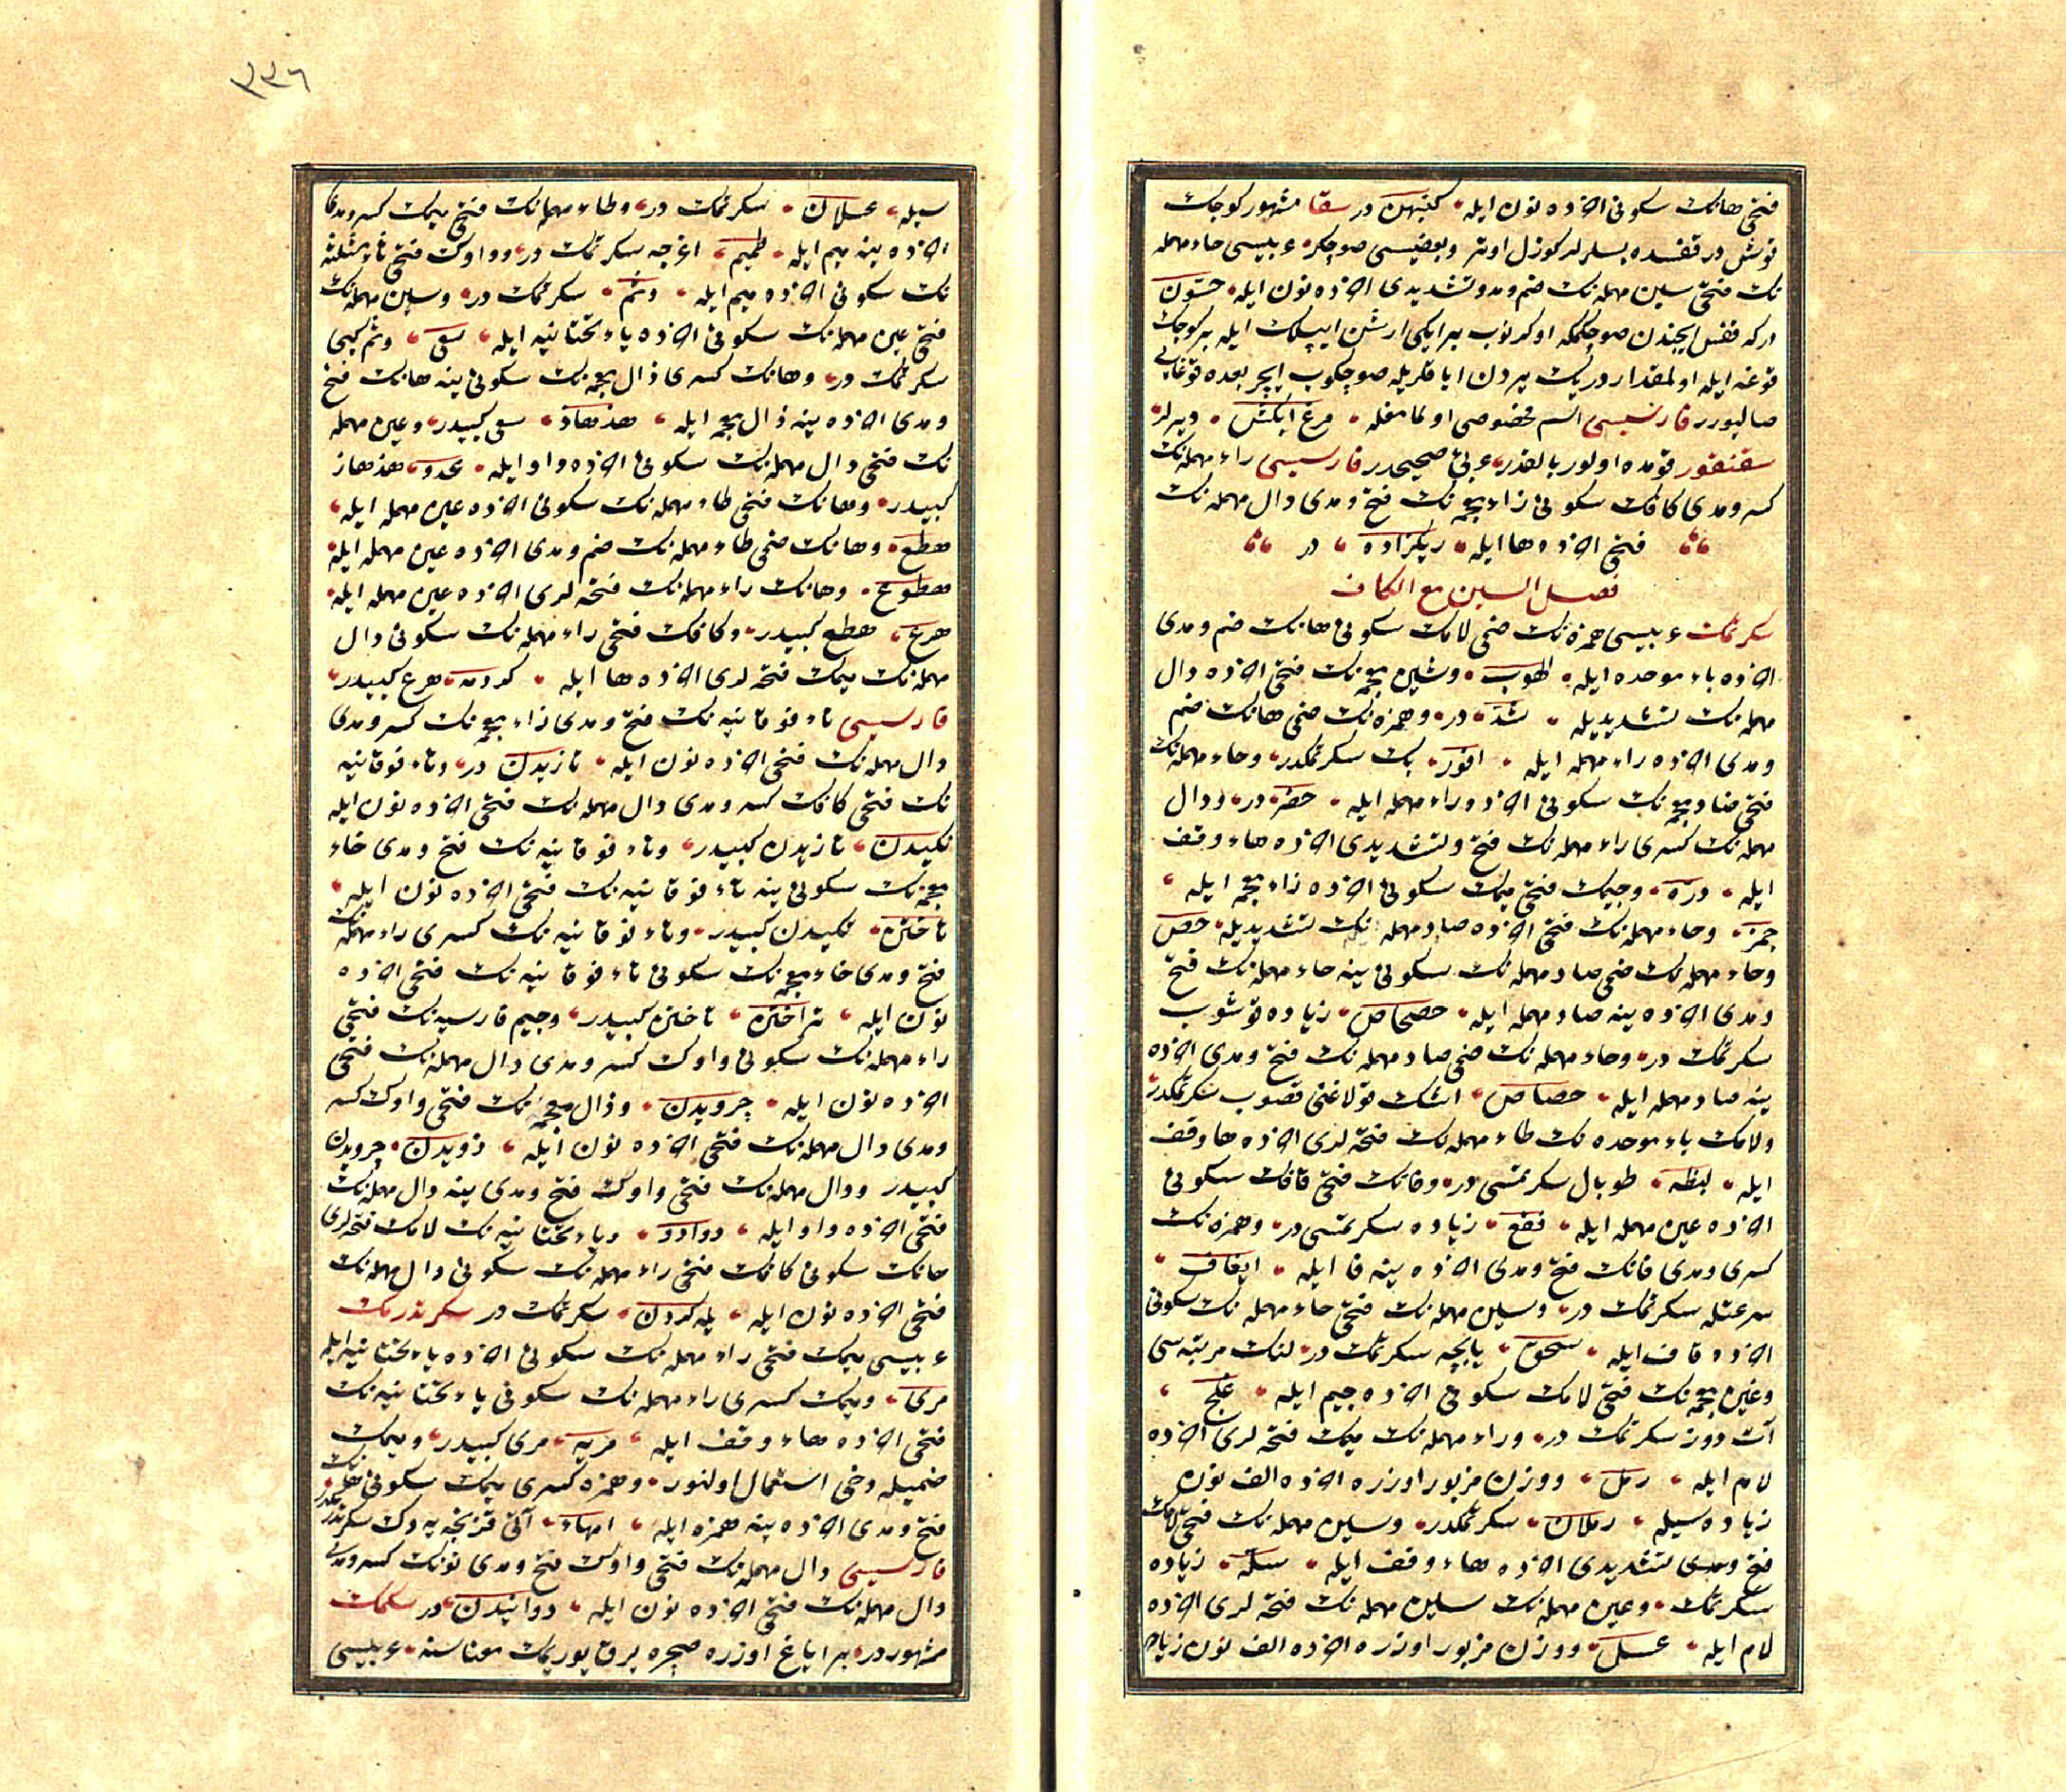 فتحی هانك سكونی اخرده نون ایله كنبهن در سقا مشهور كوجك
قوش در قفسده بسلرلر كوزل اوتر وبعضیسی صوچكر عربیسی حاء مهمله
نك فتحی سین مهمله نك ضم ومد وتشدیدی اخرده نون ایله حسّون
در كه قفس ایچندن صو چكمكه اوكرنوب بر ایكی ارشن ایپلك ایله بر كوجك
قوغه ایله اولمقدار دریك یردن ایاقلریله صو چكوب ایچر بعده قوغایی
صالیویرر فارسیسی اسم مخصوصی اولمامغله مرغ ابكش دیرلر
سقنقور قومده اولور بالقدر عربی صحیحدر فارسیسی راء مهمله نك
كسر ومدی كافك سكونی زاء معجمه نك فتح ومدی دال مهمله نك
فتحی اخرده ها ایله ریكزاده در
فصل السین مع الكاف
سكرتمك عربیسی همزه نك ضمی لامك سكونی هانك ضم ومدی
اخرده باء موحده ایله الهوب وشین معجمه نك فتحی اخرده دال
مهمله نك تشدیدیله شدّ در وهمزه نك ضمی هانك ضم
ومدی اخرده راء مهمله ایله افور بك سكرتمكدر وحاء مهمله نك
فتحی ضاد معجمه نك سكونی اخرده راء مهمله ایله حضر در ودال
مهمله نك كسری راء مهمله نك فتح وتشدیدی اخرده هاء وقف
ایله درّه وجیمك فتحی میمك سكونی اخرده زاء معجمه ایله
جمز وحاء مهمله نك فتحی اخرده صاد مهمله نك تشدیدیله حصّ
وحاء مهمله نك ضمی صاد مهمله نك سكونی ینه حاء مهمله نك فتح
ومدی اخرده ینه صاد مهمله ایله حصحاص زیاده قوشوب
سكرتمك در وحاء مهمله نك ضمی صاد مهمله نك فتح ومدی اخرده
ینه صاد مهمله ایله حصاص اشك قولاغنی قصوب سكرتمكدر
ولامك باء موحده نك طاء مهمله نك فتحه لری اخرده ها وقف
ایله لبطه طوبال سكرتمسی در وفانك فتحی قافك سكونی
اخرده عین مهمله ایله فقع زیاده سكرتمسی در وهمزه نك
كسری ومدی فانك فتح ومدی اخرده ینه فا ایله ایفاف
سرعتله سكرتمك در وسین مهمله نك فتحی حاء مهمله نك سكونی
اخرده قاف ایله سحق پایجه سكرتمك در لنك مرتبه سی
وغین معجمه نك فتحی لامك سكونی اخرده جیم ایله غلج
آت دوز سكرتمك در وراء مهمله نك میمك فتحه لری اخرده
لام ایله رمل ووزن مزبور اوزره اخرده الف نون
زیاده سیله رملان سكرتمكدر وسین مهمله نك فتحی لامك
فتح ومدی تشدیدی اخرده هاء وقف ایله سلّه زیاده
سكرتمك وعین مهمله نك سین مهمله نك فتحه لری اخرده
لام ایله عسل ووزن مزبور اوزره اخرده الف نون زیاده
٣٣٦
سیله عسلان سكرتمك در وطاء مهمله نك فتحی میمك كسر ومدی
اخرده ینه میم ایله طمیم اغرجه سكرتمك در وواوك فتحی ثاء مثلثه
نك سكونی اخرده میم ایله وثم سكرتمك در وسین مهمله نك
فتحی عین مهمله نك سكونی اخرده یاء تحتانیه ایله سعی وثم كبی
سكرتمك در وهانك كسری ذال معجمه نك سكونی ینه هانك فتح
ومدی اخرده ینه ذال معجمه ایله هذهاذ سعی كبیدر وعین مهمله
نك فتحی دال مهمله نك سكونی اخرده واو ایله عدو هذهاذ
كبیدر وهانك فتحی طاء مهمله نك سكونی اخرده عین مهمله ایله
هطع وهانك ضمی طاء مهمله نك ضم ومدی اخرده عین مهمله ایله
هطوع وهانك راء مهمله نك فتحه لری اخرده عین مهمله ایله
هرع هطع كبیدر وكافك فتحی راء مهمله نك سكونی دال
مهمله نك میمك فتحه لری اخرده ها ایله كردمه هرع كبیدر
فارسیسی تاء فوقانیه نك فتح ومدی زاء معجمه نك كسر ومدی
دال مهمله نك فتحی اخرده نون ایله تازیدن در وتاء فوقانیه
نك فتحی كافك كسر ومدی دال مهمله نك فتحی اخرده نون ایله
تكیدن تازیدن كبیدر وتاء فوقانیه نك فتح ومدی خاء
معجمه نك سكونی ینه تاء فوقانیه نك فتحی اخرده نون ایله
تاختن تكیدن كبیدر وتاء فوقانیه نك كسری راء مهمله نك
فتح ومدی خاء معجمه نك سكونی تاء فوقانیه نك فتحی اخرده
نون ایله تراختن تاختن كبیدر وجیم فارسیه نك فتحی
راء مهمله نك سكونی واوك كسر ومدی دال مهمله نك فتحی
اخرده نون ایله چرویدن وذال معجمه نك فتحی واوك كسر
ومدی دال مهمله نك فتحی اخرده نون ایله ذویدن چرویدن
كبیدر ودال مهمله نك فتحی واوك فتح ومدی ینه دال مهمله نك
فتحی اخرده واو ایله دوادو ویاء تحتانیه نك لامك فتحه لری
هانك سكونی كافك فتحی راء مهمله نك سكونی دال مهمله نك
فتحی اخرده نون ایله یله كردن سكرتمك در سكرتدرمك
عربیسی میمك فتحی راء مهمله نك سكونی اخرده یاء تحتانیه ایله
مری ومیمك كسری راء مهمله نك سكونی یاء تحتانیه نك
فتحی اخرده هاء وقف ایله مریه مری كبیدر ومیمك
ضمیله دخی استعمال اولنور وهمزه كسری میمك سكونی هانك
فتح ومدی اخرده ینه همزه ایله امهاء آتی قزنجه یه دك سكرتدرمكدر
فارسیسی دال مهمله نك فتحی واوك فتح ومدی نونك كسر ومدی
دال مهمله نك فتحی اخرده نون ایله دوانیدن در سكمك
مشهور در بر ایاغ اوزره صچره یرق یوریمك معناسنه عربیسی